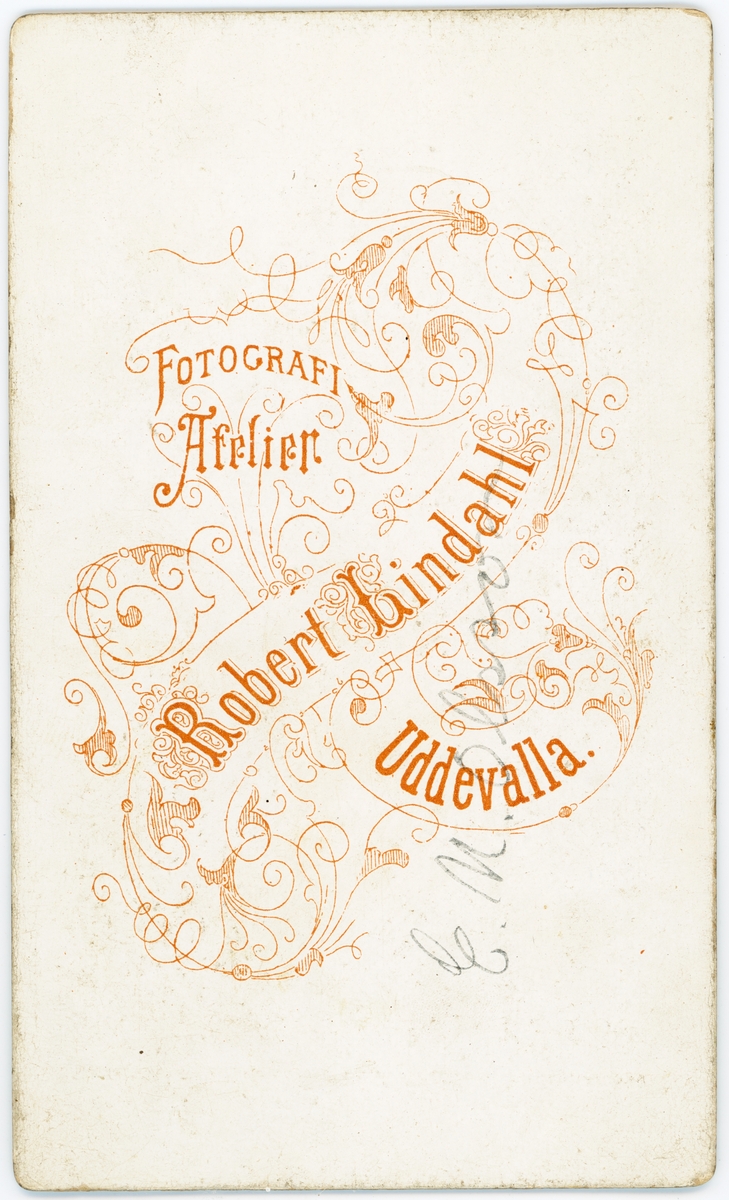 FOTOGRAFI
Atelier
Robert Lindahl
Uddevalla.
C. M.